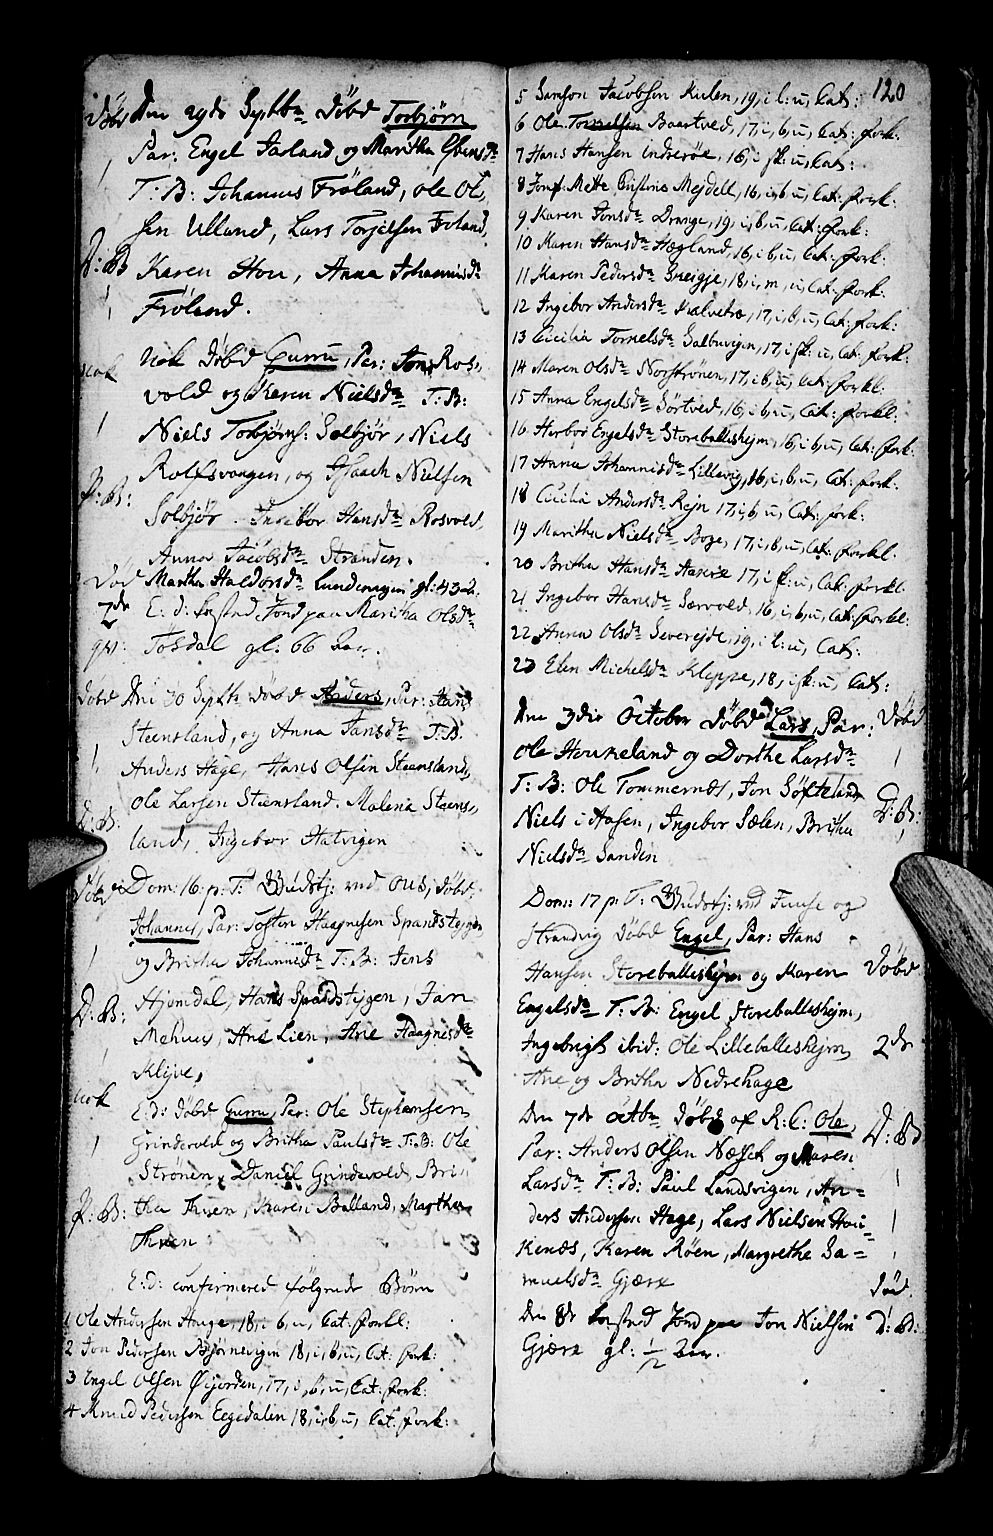 Døbd Den 29de Sептbr Døbd Torbjørn
Par: Engel Taland og Maritha
T: B: Johannes Frøland, Ole Ol,
sen Ulland, Lars Torjelsen Frøland,
D: B Karen Hou, Anna Johannisdr
Frøland.
Nok Nok Døbd Guru, Par: Jon Ros,
vold og Karen Nielsdr T: B:
Niels Torbjørns: Solbjør, Niels
Rolfsvogen, og Isaach Nielsen
D: B: Solbjør. Ingebor Hansdr Rosvold,
Anna Jacobsdr Stranden.
Død Martha Haldorsdr Lundervigen gl: 43 a.
2de E: d: kasted Jord paa Maritha Olsdr
qvi: Tøsdal gl: 66 Aar.
Døbd Den 30 Septbr Døbd Anders, Par: Hans
Steensland, og Anna Jansdr T: B:
Anders Hage, Hans Olsen Steensland,
D: B: Ole Larsen Steensland. Malena Steens,
land, Ingebor Hatvigen
Døbd Dom: 16: p: T: Udstj: ved Ous, Døbd
Johannes, Par: Tosten Haagnesen Spandstygen
og Britha Johannisdr T: B: Jens
D: B: Hjemdal, Hans Spandstygen, Jan
Mehuus, Ane Lien, Ane Haagnisdr
Klyve,
Nok E: d: Døbd Guru, Par: Ole Stephansen
Grindevold og Britha Paulsdr T: B: Ole
Strønen, Daniel Grindevold, Bri,
D: B: tha Thuen, Karen Balland, Martha
Thuen
E: d: confirmered følgende Børn
1 Ole Andersen Hauge, 18, i b, u, Cat: forkl:
2 Jon Pedersen Bjørnevigen 18, i, b, u, Cat: fork:
3 Engel Olsen Øijorden, 17, i, b, u, Cat: fork:
4 Knud Pedersen Eegedalen 18, i, b, u, Cat: fork:
120
5 Samson Jacobsen Kulen, 19, i l: u, Cat:
6 Ole Tornelsen Baartved, 17, i, b, u, Cat: fork:
7 Hans Hansen Indrerøe, 16, i sk: u, Cat:
8 Jomf: Mette Mejdell, 16, i, b u, Cat: fork:
9 Karen Jonsdr Drange, 19, i, b, u, Cat: fork:
10 Karen Hansdr Hegland, 16, i b, u, Cat: fork:
11 Maren Pedersdr Sveigje, 18, i, m, u, Cat: fork:
12 Ingebor Andersdr Kalvetræ, 17, i, b, u, Cat: fork:
13 Cicilia Tornelsdr Salbuvigen, 17, i sk: u, Cat: fork:
14 Maren Olsdr Norstrønen, 17, i b, u, Cat: forkl:
15 Anna Engelsdr Sørtved, 16, i b, u, Cat: forkl:
16 Herbor Engelsdr Storeballeshejm, 16, i b, u, Cat: fork:
17 Anna Johannisdr Lillevig, 16, i, b, u, Cat: fork:
18 Cicilia Andersdr Rejn 17, i, b, u, Cat: fork:
19 Maritha Nielsdr Boge, 17, i, b, u, Cat: forkl:
20 Britha Hansdr Aasere 17, i sk: u, Cat: forkl:
21 Ingebor Hansdr Sævold, 16, i, b, u, Cat: forkl:
22 Anna Olsdr Severejde, 19, i l: u, Cat:
23 Elen Michelsdr Kleppe, 18, i, sk: u, Cat:
Den 3die October Døbd Lars, Par: Døbd
Ole Houkeland og Dorthe Larsdr
T: B: Ole Tommernes, Jon Søfteland D: B:
Niels i Hosen, Ingebor Sælen, Britha
Nielsdr Sanden
Dom: 17 p: T: Udstj: ved Fuuse og
Strandvig Døbd Engel, Par: Hans
Hansen Storeballeshejm og Karen Døbd
Engelsdr T: B: Engel Storeballeshejm,
Ingebrigt ibid: Ole Lilleballeshejm, 2dr
Ane og Britha Nedrehage
Den 7de Octbr Døbd af R: C: Ole,
Par: Anders Olsen Næset og Maren D: B
Larsdr T: B: Paul Landsvigen, An=
ders Andersen Hage, Lars Nielsen Hou=
kenæs, Karen Røen, Margrethe Sa=
muelsdr Gjære Død
Den 8de kasted Jord paa Jon Nielsen D: B:
Gjære gl: 1/2 Aar.